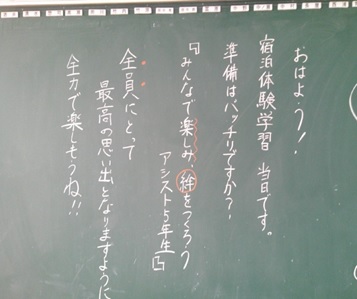 おはよう!
宿泊体験学習 当日です。
準備はバッチリですか?
『みんなで楽しみ、絆をつくろう
アシスト5年生』
全員にとって
最高の思い出となりますように
全力で楽しもうね!!